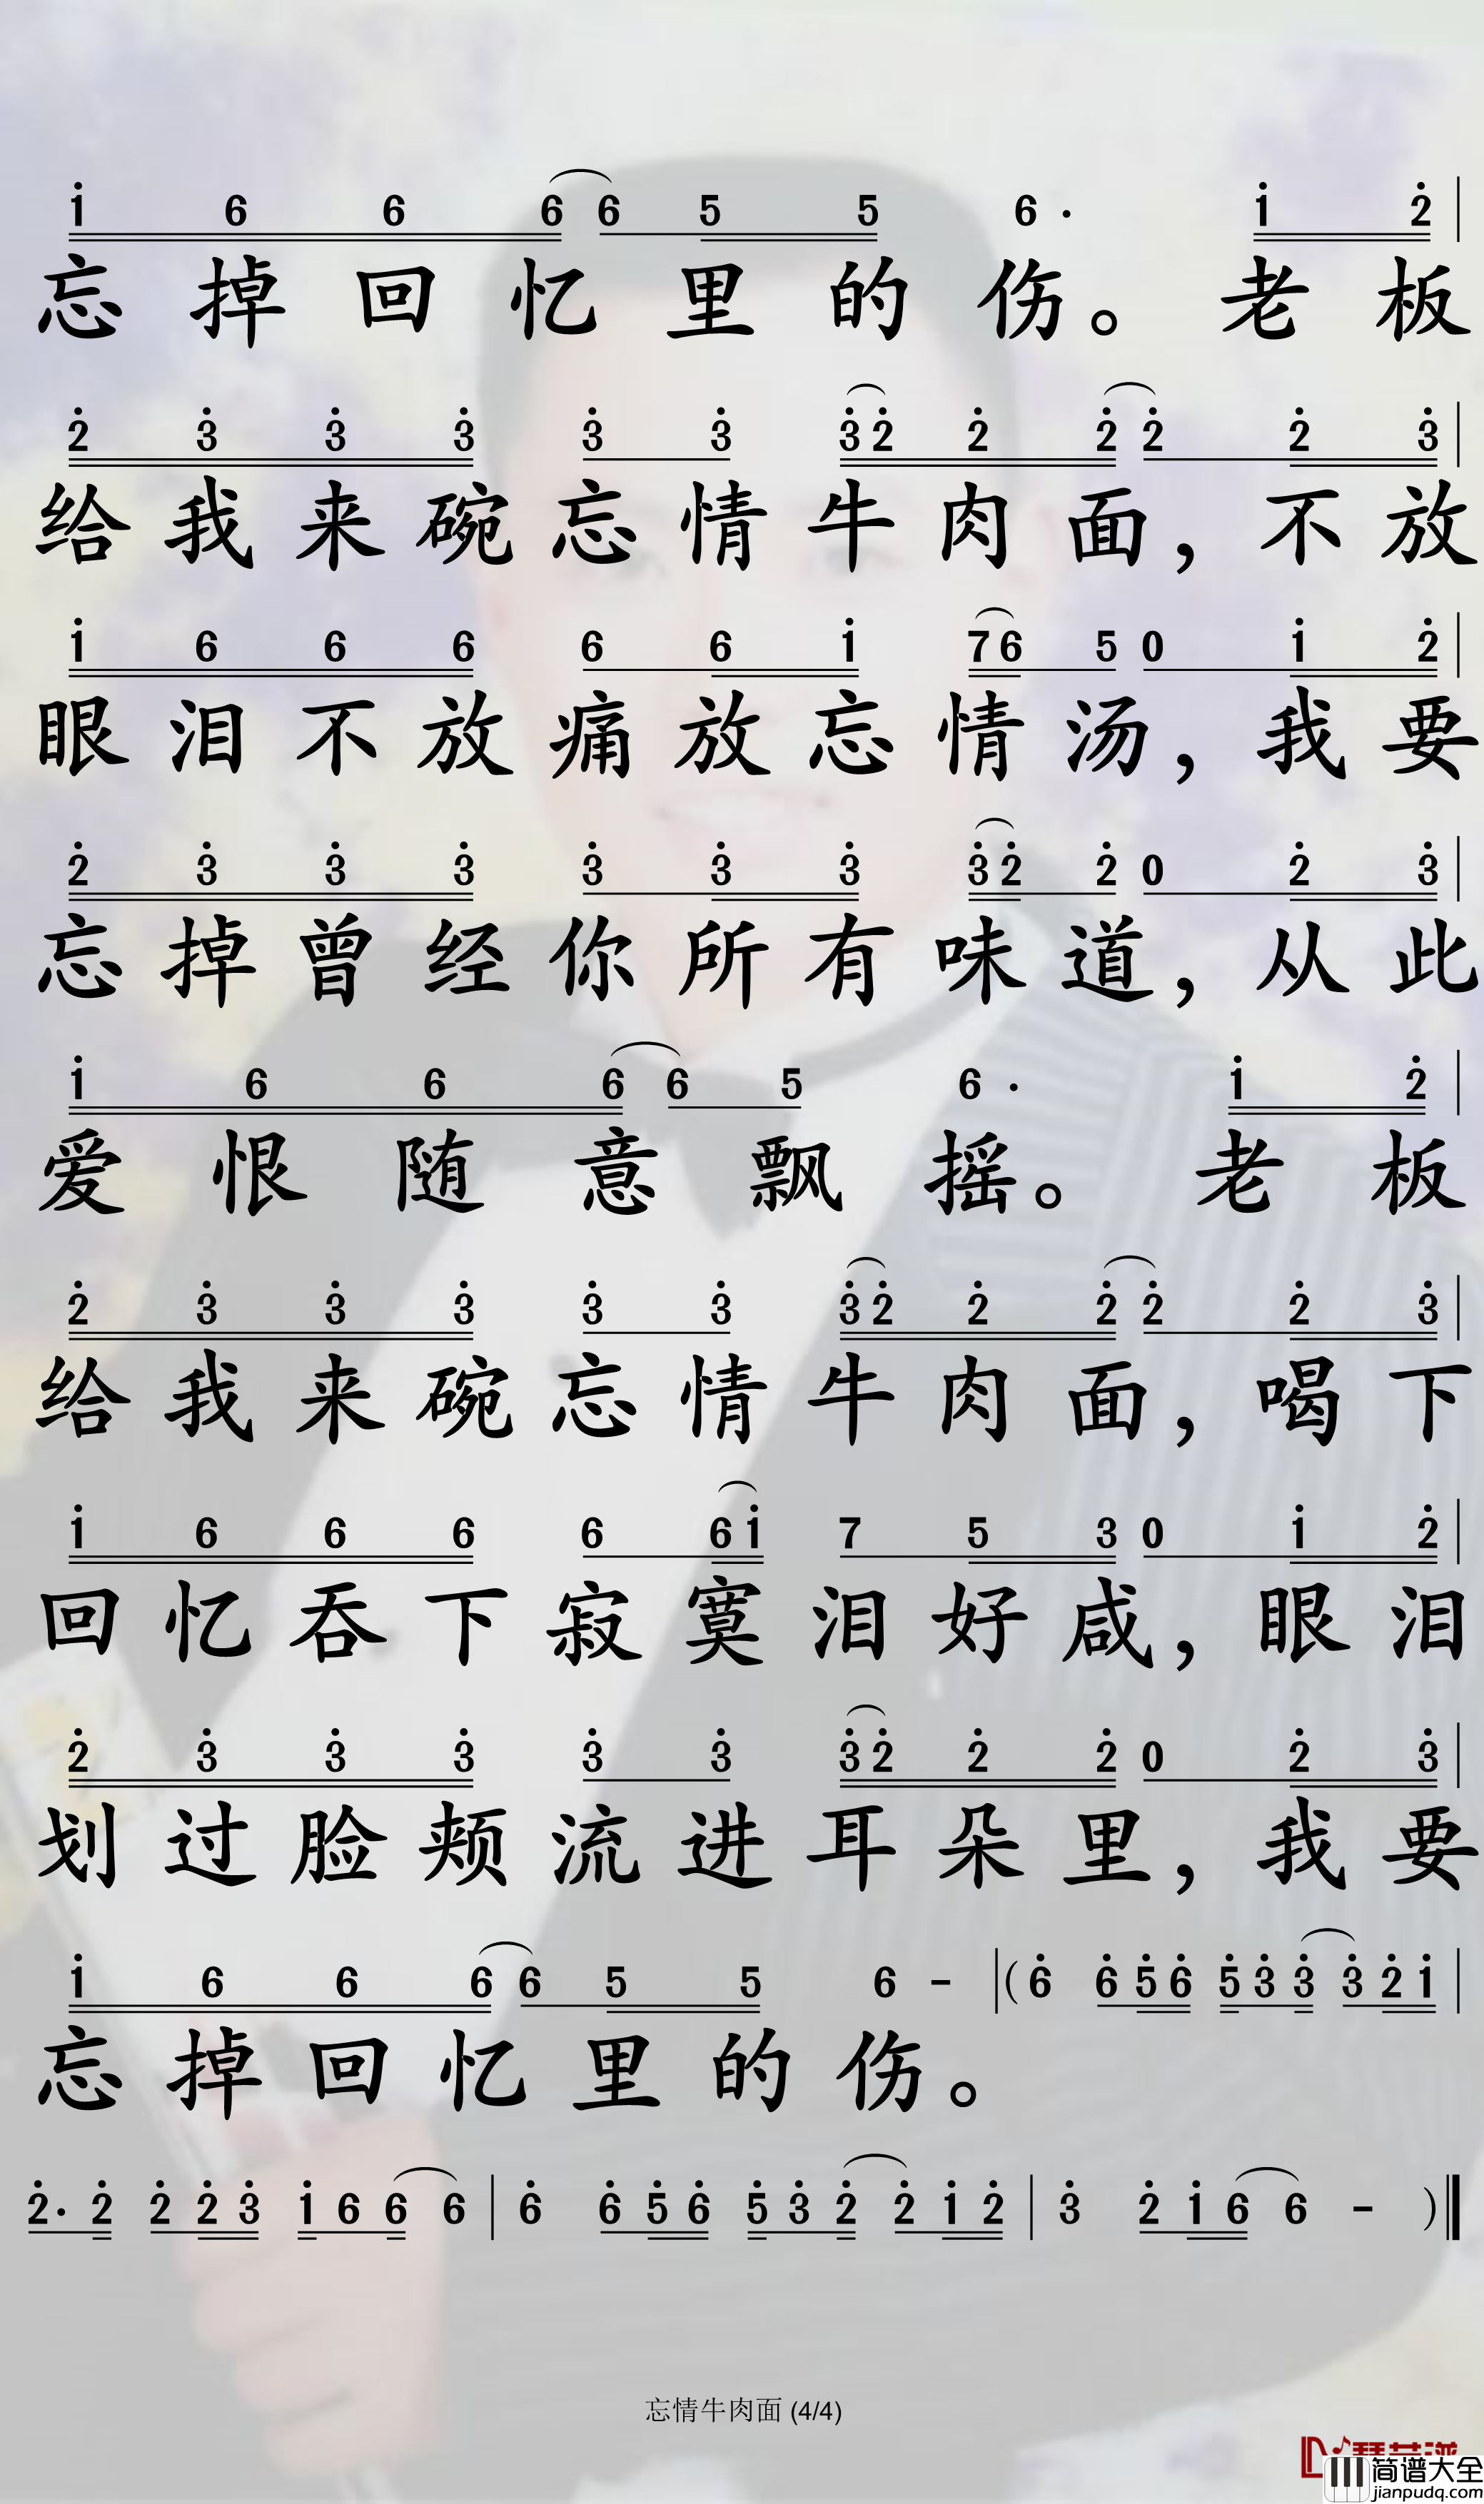 1 6 6 6 6 5 5 6 · 1 2
忘掉回忆里的伤。老板
2 3 3 3 3 3 3 2 2 2 2 2 3
给我来碗忘情牛肉面，不放
1 6 6 6 6 6 1 7 6 5 0 1 2
眼泪不放痛放忘情汤，我要
2 3 3 3 3 3 3 3 2 2 0 2 3
忘掉曾经你所有味道，从此
1 6 6 6 6 5 6 · 1 2
爱恨随意飘摇。老板
2 3 3 3 3 3 3 2 2 2 2 2 3
给我来碗忘情牛肉面，喝下
1 6 6 6 6 6 1 7 5 3 0 1 2
回忆吞下寂寞泪好咸，眼泪
2 3 3 3 3 3 3 2 2 2 0 2 3
划过脸颊流进耳朵里，我要
1 6 6 6 6 5 5 6 - ( 6 6 5 6 5 3 3 3 2 1
忘掉回忆里的伤。
2 · 2 2 2 3 1 6 6 6 6 6 5 6 5 3 2 2 1 2 3 2 1 6 6 - )
忘情牛肉面 (4/4)
简谱大全
jianpudq.com